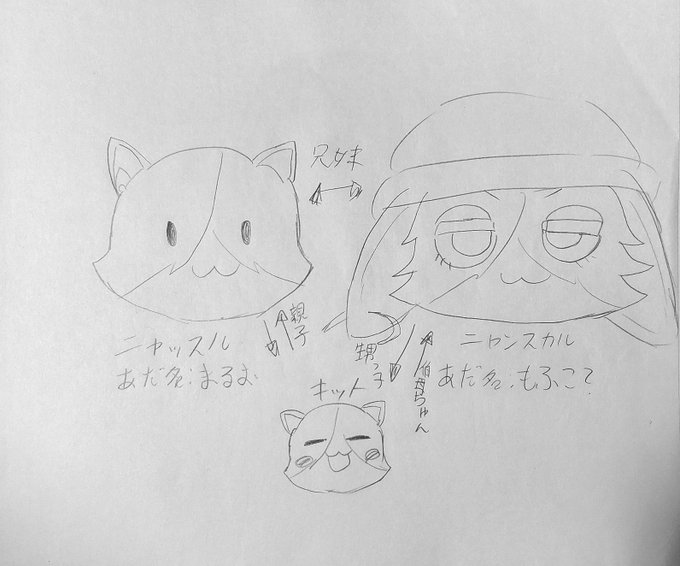 兄妹
親子
ニャッスル
あだ名:まるお
甥っ子
伯母ちゃん
ニャンスカル
あだ名.もふこ?
キット